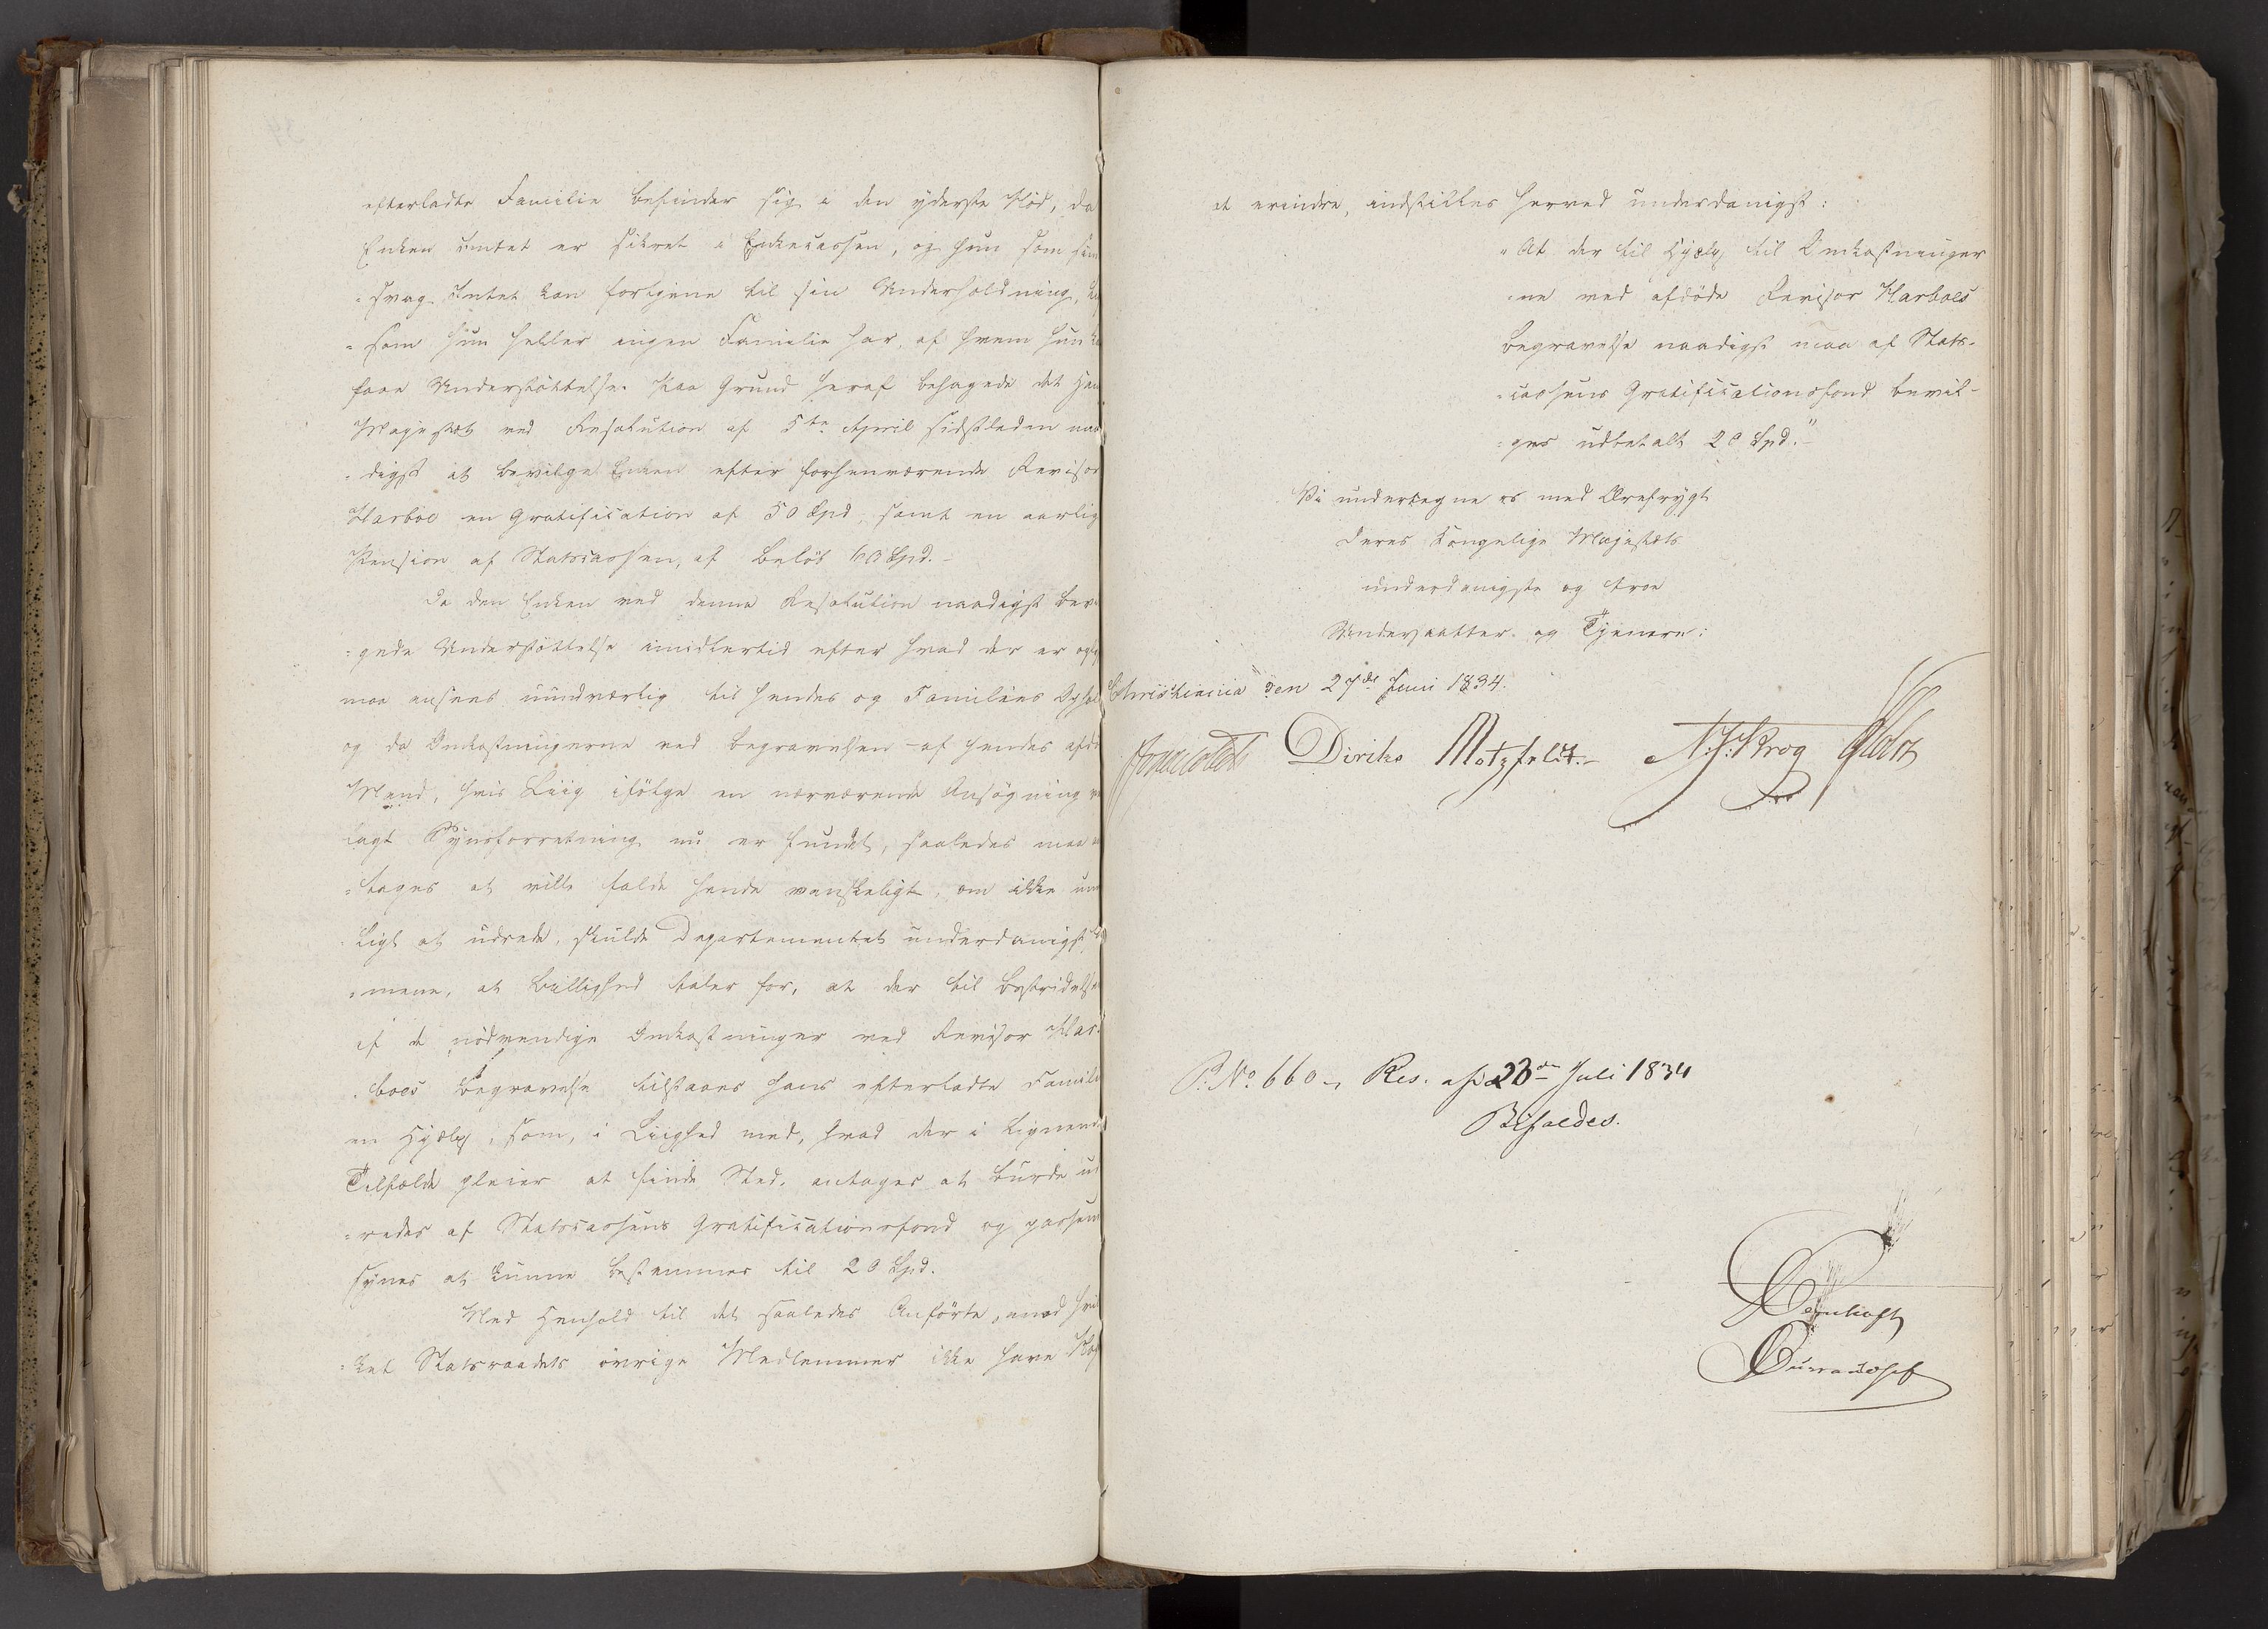 efterladte Familie befinder sig i den yderste Nöd, da
Enken Intet er sikret i Enkecassen, og hun som
=svag Intet kan fortjene til sin Underholdning,
=som hun heller ingen Familie har, af hvem hun
faae Understöttelse. Paa Grund heraf behagede det
Majestæt ved Resolution af 5te April sidstleden naa
=digst at bevilge Enken efter forhenværende Revisor
Harboe en Gratification af 50 Spd, samt en aarlig
Pension af Statscassen, af Belöb 60 Spd.-
Da den Enken ved denne Resolution naadigst bevi
=gede Understöttelse imidlertid efter hvad der er
maa ansees uundværlig til hendes og Familiens Ophol
og da Omkostningerne ved Begravelsen af hendes afdö
Mand, hvis Liig ifölge en nærværende Ansögning
lagt Synsforretning nu er fundet, saaledes maa
=tages at ville falde hende vanskeligt, om ikke um
=ligt at udrede, skulde Departementet underdanigst
=mene, at Billighed taler for, at der til Bestridelse
af de nödvendige Omkostninger ved Revisor Har-
=boes Begravelse tilstaaes hans efterladte Famili
en Hjælp, som, i Liighed med, hvad der i lignende
Tilfælde pleier at finde Sted, antages at burde ud
=redes af Statscassens Gratificationsfond og passen
synes at kunne bestemmes til 20 Spd.
Med Henhold til det saaledes Anförte, mod hvil
=ket Statsraadets övrige Medlemmer ikke have No
at erindre, indstilles herved underdanigst:
"At der til Hjælp til Omkostninger
=ne ved afdöde Revisor Harboes
Begravelse naadigst maa af Stats-
=cassens Gratificationsfond bevil-
=ges udbetalt 20 Spd."-
Vi undertegne os med Ærefrygt
Deres Kongelige Majestæts
underdanigste og troe
Undersaatter og Tjenere:
Christiania den 27de Juni 1834.
Jonas Collett Diriks Motzfeldt.- N:J:Krog Holst
P. No 660 -, Res. af 23de Juli 1834
Bifaldes.